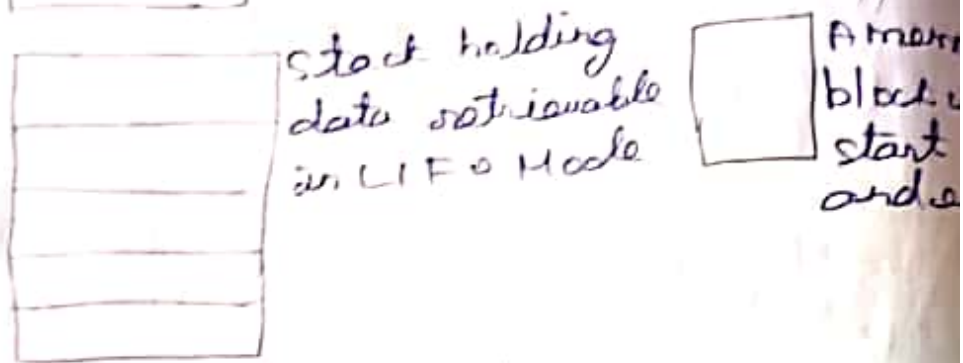 stack holding
data retrievable
in LIFO Mode
A mem
block
start
and